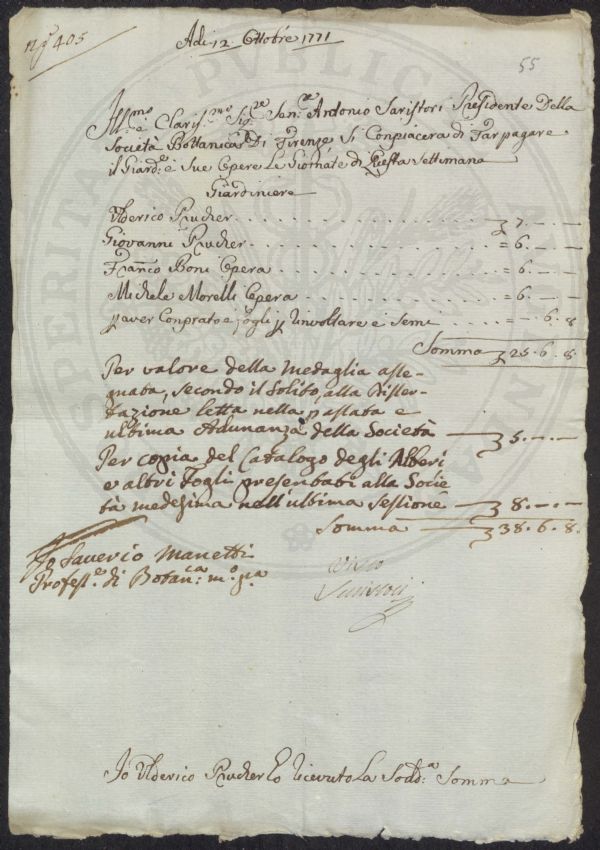 N.º 405
Adi 12 Ottobre 1771
55
Ill.mo e Claris.mo Sig.re Sen.re Antonio Saristori Presidente Della
Società Bottanica Di Firenze Si Conpiacerà di Far pagare
il Giard.e e Sue Opere Le Giornate di Questa Settimana
Giardiniere
Ulderico Prucher . . . . . . . . 7. — —
Giovanni Prucher . . . . . . . . = 6. — —
Fran.co Boni Opera . . . . . . . . = 6. — —
Michele Morelli Opera . . . . . . . . = 6. — —
p aver Conprato e fogli p Involtare e Semi . . . = — 6. 8
Somma 25. 6. 8.
Per valore della Medaglia asse-
gnata, secondo il solito, alla Disser-
tazione letta nella passata e
ultima Adunanza della Società — 5. — —
Per copia del Catalogo degli Alberi
e altri Fogli presentati alla Socie
tà medesima nell'ultima sessione — 8. — —
Somma — 38. 6. 8.
Io Saverio Manetti
Profess.e di Botan.ca m.o p.a
Visto
Io Ulderico Prucher ho ricevuto La Sodd.a Somma
PVBLICAE